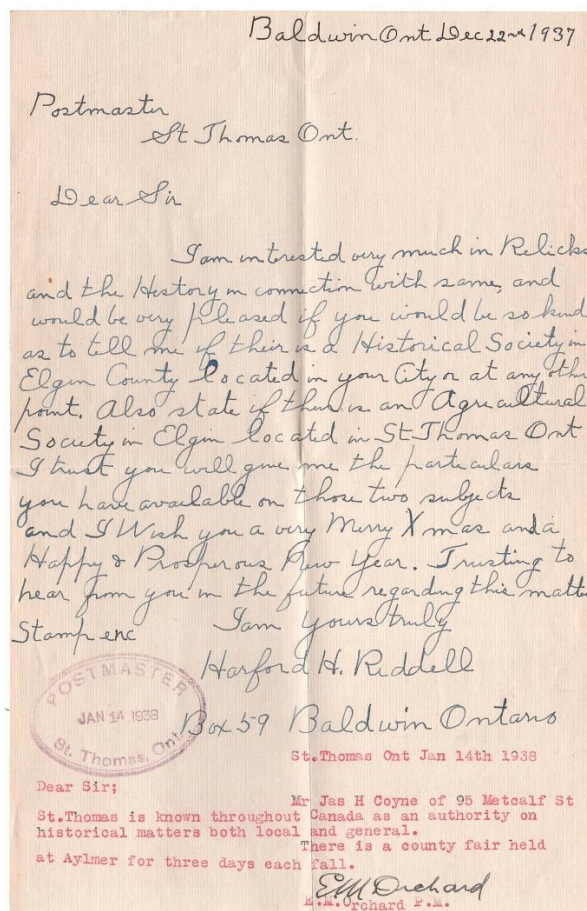 Baldwin Ont Dec 22nd 1937
Postmaster
St Thomas Ont.
Dear Sir
I am intrested very much in Relicks
and the History in connection with same, and
would be very pleased if you would be so kind
as to tell me if their is a Historical Society in
Elgin County located in your City or at any other
point. Also state if their is an Agricultural
Society in Elgin located in St Thomas Ont
I trust you will give me the particulars
you have available on those two subjects
and I Wish you a very Merry Xmas and a
Happy & Prosperous New Year. Trusting to
hear from you in the future regarding this matter
Stamp enc I am Yours truly
Harford H. Riddell
Box 59 Baldwin Ontario
POSTMASTER
JAN 14 1938
St. Thomas, Ont.
St.Thomas Ont Jan 14th 1938
Dear Sir;
Mr Jas H Coyne of 95 Metcalf St
St.Thomas is known throughout Canada as an authority on
historical matters both local and general.
There is a county fair held
at Aylmer for three days each fall.
E M Orchard
E.M.Orchard P.M.